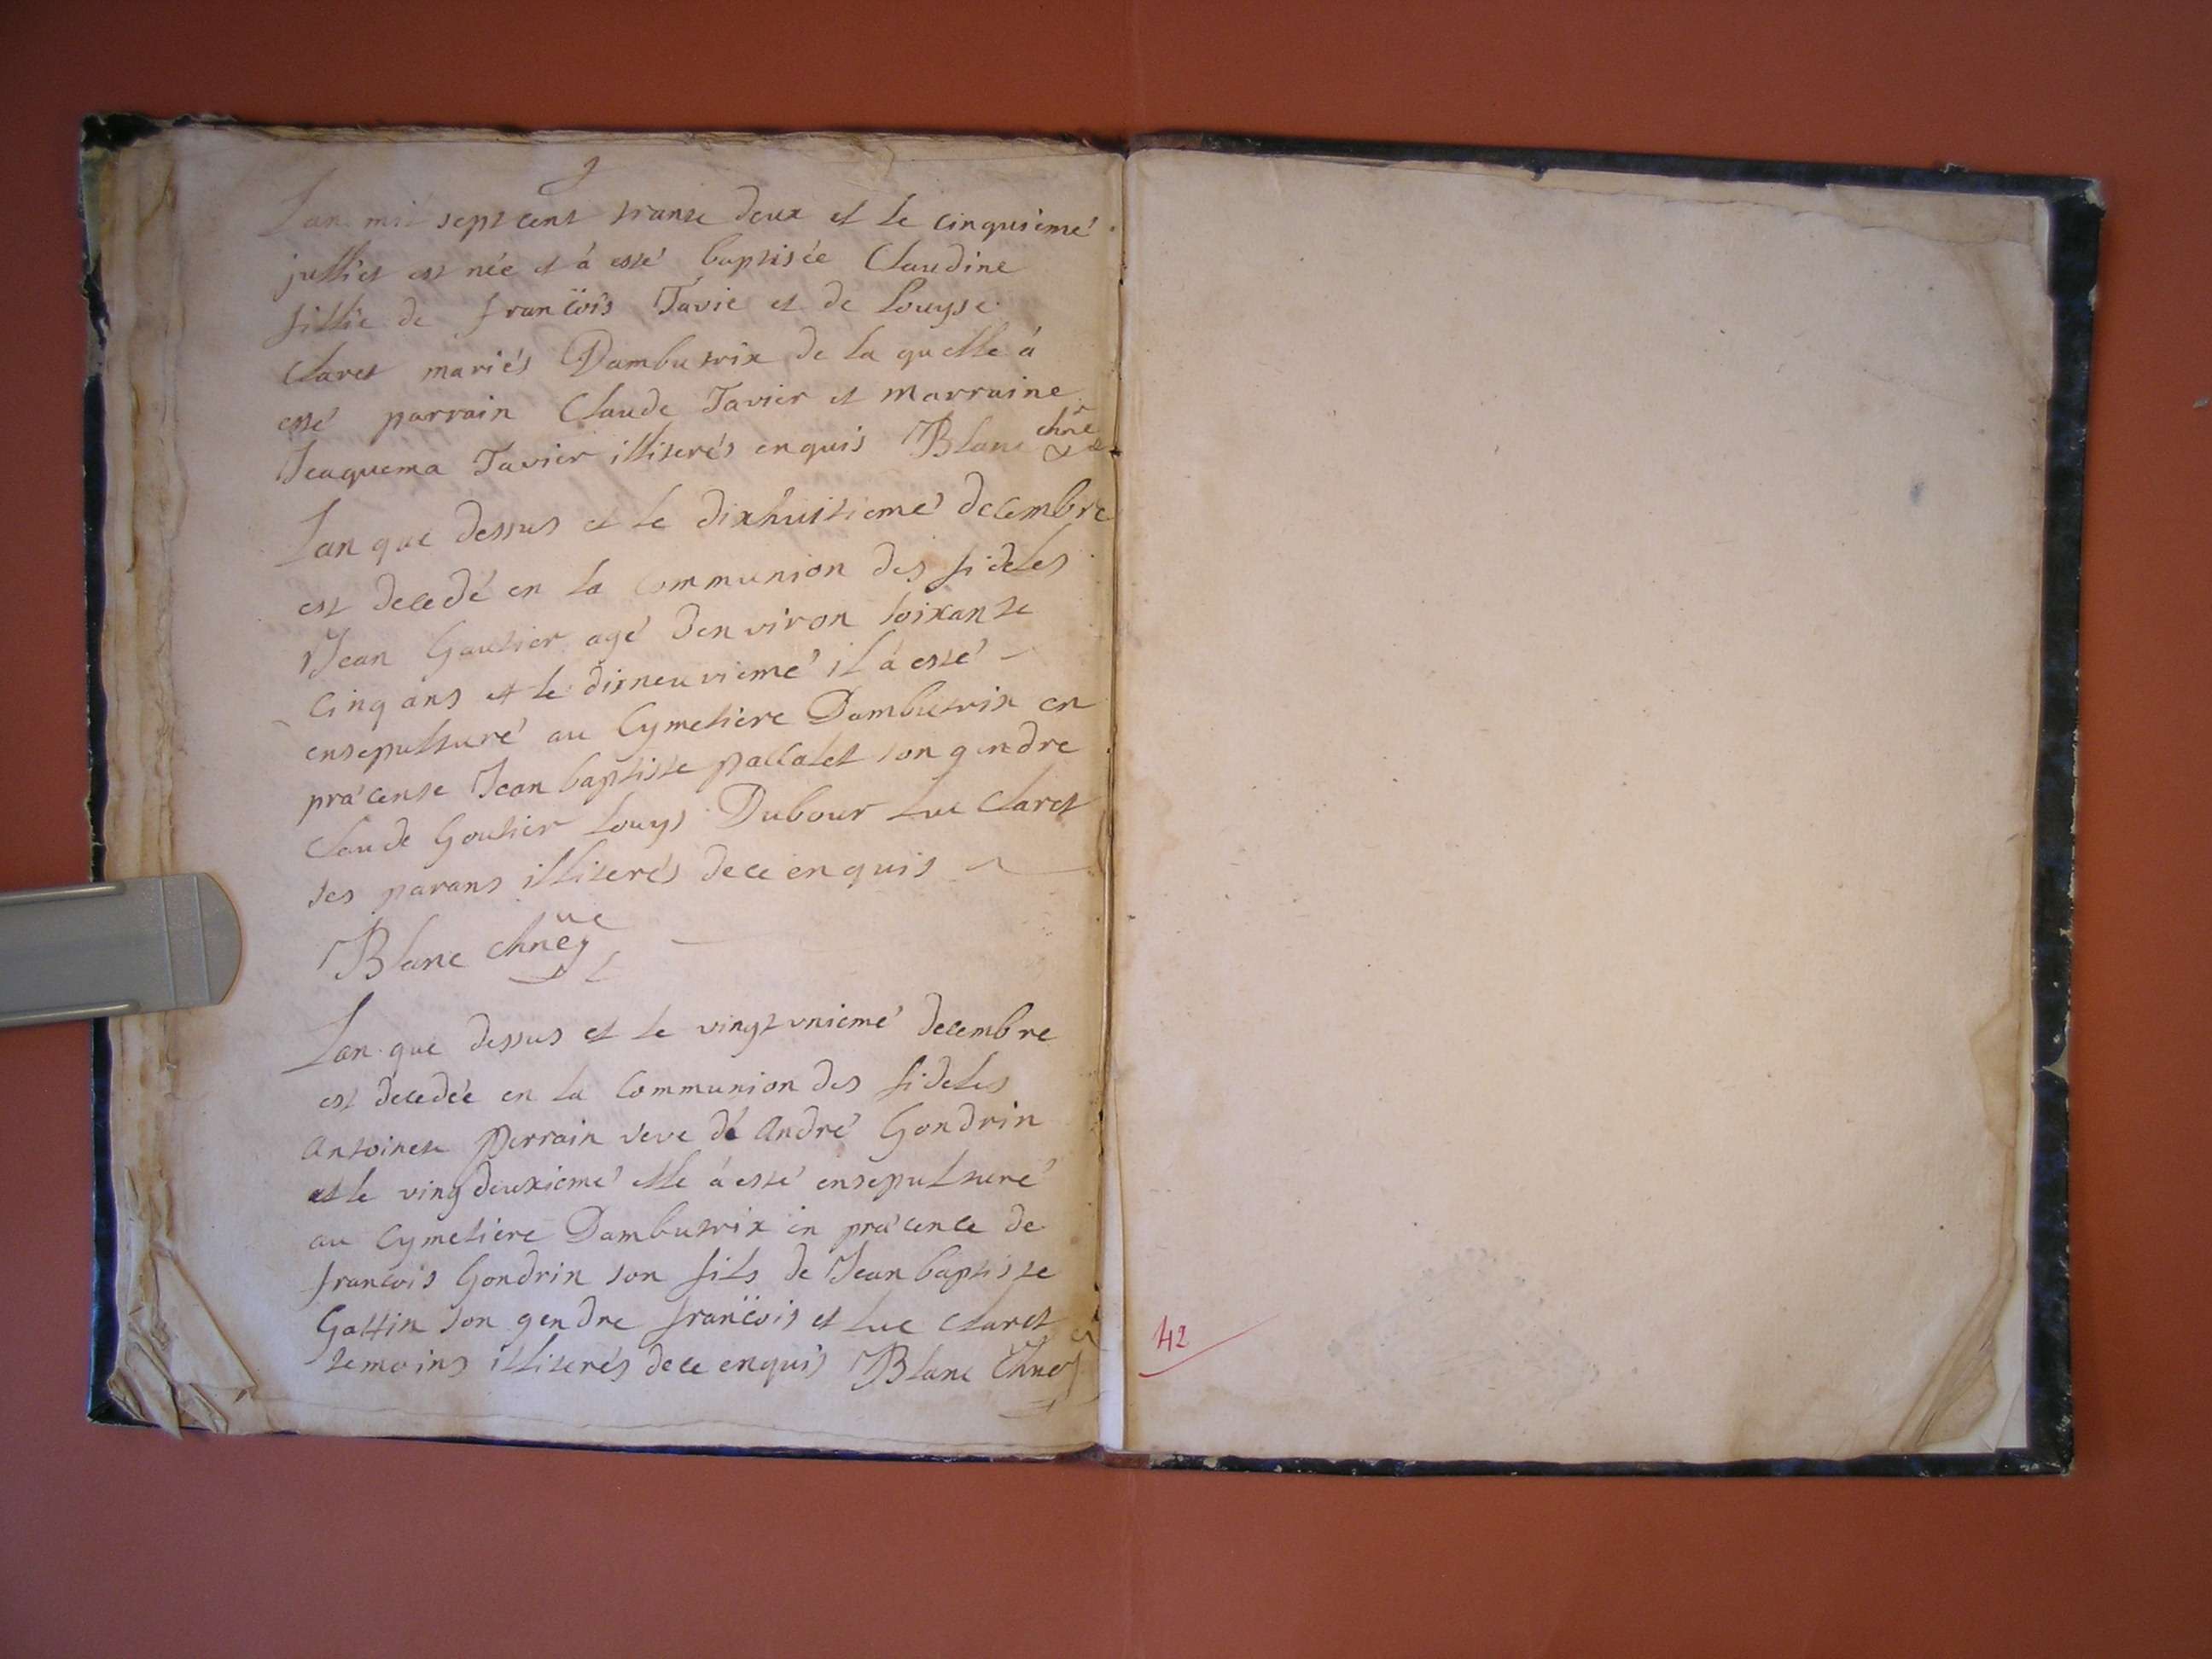 Lan mil sept cent trante deux et le cinquiemé
julliet est née et à esté baptisée Claudine
fillie de francöis Tavie et de Louyse
Claret mariés Dambutrix de la quelle à
esté parrain Claude Tavier et marraine
Jeaquema Tavier illiterés enquis Blanc chne
Lan que dessus et le dixhuitiemé decembre
est decedé en la communion des fideles
Jean Gautier agé denviron soixante
cinq ans et le dixneuviemé il à esté
ensepulturé au cymetiere Dambutrix en
præcense Jean baptiste pallatet son gendre
Claude Goutier Louys Dubour Luc Claret
ses parans illiterés de ce enquis
Blanc chne
Lan que dessus et le vingtuniemé decembre
est decedée en la communion des fideles
Antoinete Perrain veve dé André Gondrin
et le ving deuxiemé elle à esté ensepulturé
au cymetiere Dambutrix en præcence de
francois Gondrin son fils de Jean baptiste
Gottin son gendre francöis et Luc Claret
temoins illiterés de ce enquis Blanc chne
42